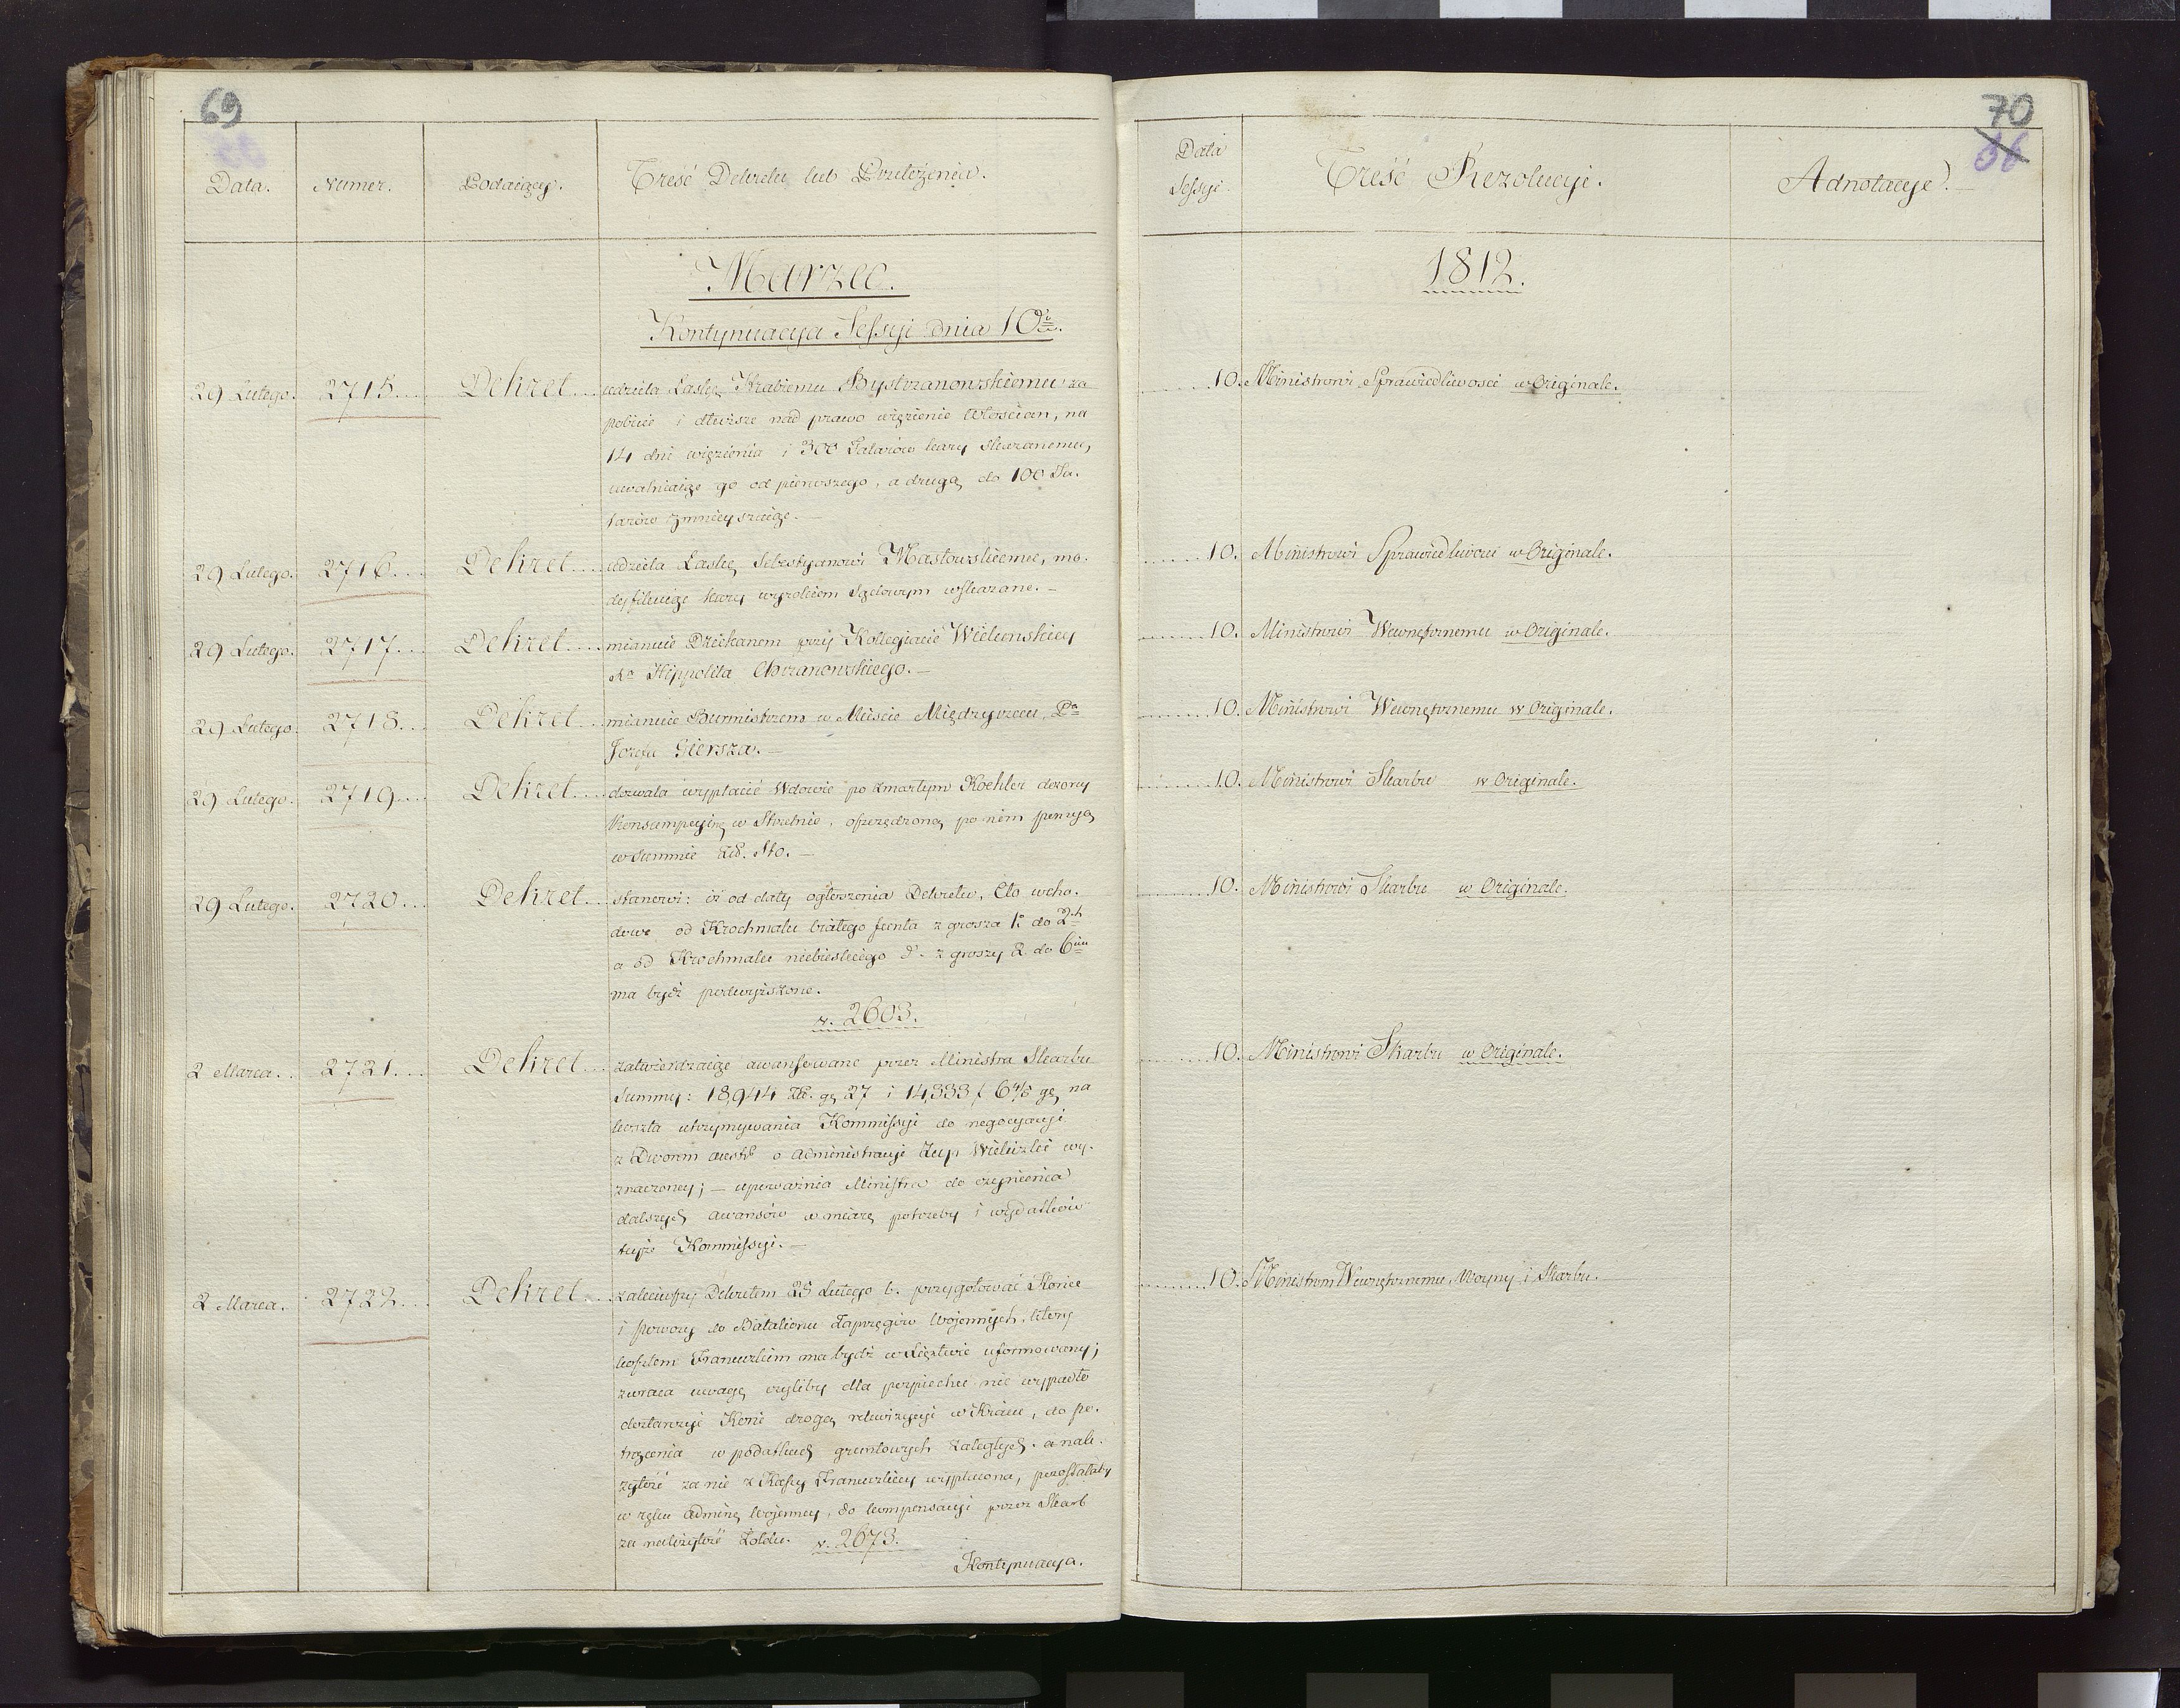 69
Data.
Numer.
Podaiący.
Treść Dekretu lub Przełożenia.
Marzec.
Kontynuacya Sessyi dnia 10go.
29 Lutego. 2715... Dekret... udziela Łaskę Hrabiemu Bystrzanowskiemu za
pobicie i dłuższe nad prawo więzienie Włościan, na
14 dni więzienia i 300 Talarów kary skazanemu,
uwalniaiąc go od pierwszego, a drugą do 100 Ta-
larów zmnieyszaiąc.—
29 Lutego. 2716... Dekret... udziela Łaskę Sebestyanowi Masłowskiemu, mo-
dyfikuiąc kary wyrokiem Sądowym wskazane.—
29 Lutego. 2717... Dekret... mianuie Dziekanem przy Kollegiacie Wieluńskiey
Xa Hippolita Chrzanowskiego.—
29 Lutego. 2718... Dekret... mianuie Burmistrzem w Mieście Międzyrzecu, Pa
Jozefa Giersza.—
29 Lutego. 2719... Dekret... dozwala wypłacić Wdowie po zmarłym Koehler dozorcy
Konsumpcyiną w Strzelnie, oszczędzoną po nim pensyą
w summie Złł. Sto.—
29 Lutego. 2720... Dekret... stanowi: iż od daty ogłoszenia Dekretu, Cło wcho-
dowe od Krochmalu białego funta z grosza 1o do 2ch
a od Krochmalu niebieskiego do. z groszy 2 do 6ciu
ma bydź podwyższone.
v. 2603.
2 Marca.. 2721... Dekret... zatwierdzaiąc awansowane przez Ministra Skarbu
Summy: 18,944 Złł. gr 27 i 14,333 f 6 4/5 gr na
koszta utrzymywania Kommissyi do negocyacyi
z Dworem austr. o administracyi Żup Wieliczki wy-
znaczoney;— upoważnia Ministra do czynienia
dalszych awansów w miarę potrzeby i wydatków
teyże Kommissyi.—
2 Marca. 2722... Dekret... zaleciwszy Dekretem 25 Lutego b. przygotować Konie
i powozy do Batalionu Zaprzęgów Wojennych, który
kosztem Francuzkim ma bydź w Xięztwie uformowany;
zwraca uwagę czyliby dla pospiechu nie wypadło
dostarczyć Konie drogą rekwizycyi w Kraiu, do po-
trącenia w podatkach gruntowych zaległych. a nale-
żytość za nie z Kassy Francuzkiey wypłacona, pozostałaby
w ręku admin. Wojenney, do kompensacyi przez Skarb
za należytość Żołdu. v. 2673.
Kontynuacya.
70
36
Data
Sessyi.
Treść Rezolucyi.
Adnotacye.
1812.
10. Ministrowi Sprawiedliwosci w Originale.
10. Ministrowi Sprawiedliwosci w Originale.
10. Ministrowi Wewnętrznemu w Originale.
10. Ministrowi Wewnętrznemu w Originale.
10. Ministrowi Skarbu w Originale.
10. Ministrowi Skarbu w Originale.
10. Ministrowi Skarbu w Originale.
10. Ministrom Wewnętrznemu, Woyny i Skarbu.